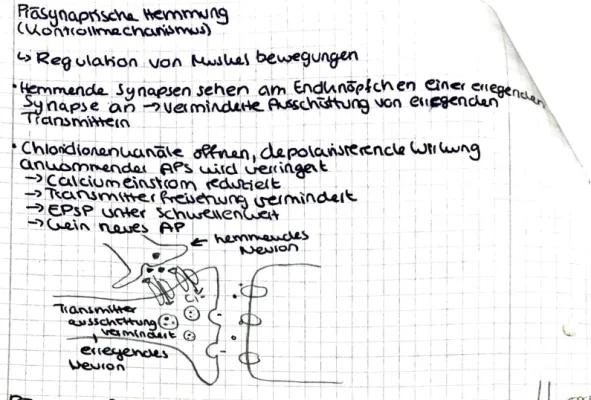 Präsynaptische Hemmung
(Kontrollmechanismus)
↳ Regulation von Muskelbewegungen
• Hemmende Synapsen sehen am Endknöpfchen einer erregenden
Synapse an → verminderte Ausschüttung von erregenden
Transmittern
• Chloridionenkanäle öffnen, depolarisierende Wirkung
ankommender APs wird verringert
→ Calciumeinstrom reduziert
→ Transmitterfreisetzung vermindert
→ EPSP unter Schwellenwert
→ Kein neues AP
← hemmendes
Neuron
Transmitter
ausschüttung
vermindert
erregendes
Neuron